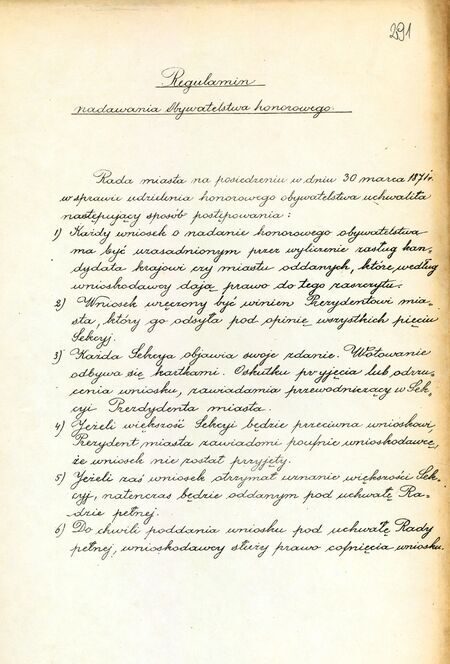 291
Regulamin
nadawania Obywatelstwa honorowego.
Rada miasta na posiedzeniu w dniu 30 marca 1871 r.
w sprawie udzielenia honorowego obywatelstwa uchwaliła
następujący sposób postępowania:
1) Każdy wniosek o nadanie honorowego obywatelstwa
ma być uzasadnionym przez wyliczenie zasług kan-
dydata krajowi czy miastu oddanych, które według
wnioskodawcy dają prawo do tego zaszczytu.
2) Wniosek wręczony być winien Prezydentowi mia-
sta, który go odsyła pod opinię wszystkich pięciu
Sekcyj.
3) Każda Sekcya objawia swoje zdanie. Wotowanie
odbywa się kartkami. O skutku przyjęcia lub odrzu-
cenia wniosku, zawiadamia przewodniczący w Sek-
cyi Prezydenta miasta.
4) Jeżeli większość Sekcyi będzie przeciwna wnioskowi,
Prezydent miasta zawiadomi poufnie wnioskodawcę,
że wniosek nie został przyjęty.
5) Jeżeli zaś wniosek otrzymał uznanie większości Sek-
cyj, natenczas będzie oddanym pod uchwałę Ra-
dzie pełnej.
6) Do chwili poddania wniosku pod uchwałę Rady
pełnej, wnioskodawcy służy prawo cofnięcia wniosku.